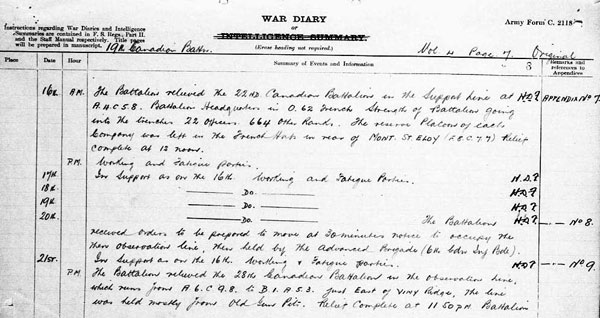 WAR DIARY
OR
INTELLIGENCE SUMMARY.
(Erase heading not required.)
Army Form C. 2118
Instructions regarding War Diaries and Intelligence
Summaries are contained in F. S. Regs., Part II.
and the Staff Manual respectively. Title pages
will be prepared in manuscript.
19th Canadian Battn.
Vol 4 Page 7 Original
Place Date Hour Summary of Events and Information Remarks and references to Appendices
16th A.M. The Battalion relieved the 22nd Canadian Battalion in the Support Line at APPENDIX No 7.
A.4.C.5.8. Battalion Headquarters in O.62 French Strength of Battalion going
into the trenches 22 Officers 664 Other Ranks. The reserve Platoons of each
Company was left in the French Huts in rear of MONT. ST. ELOY Relief
complete at 12 noon.
P.M. Working and Fatigue parties.
17th In Support as on the 16th Working and Fatigue Parties.
18th Do. Do.
19th Do. Do.
20th Do. The Battalion No 8.
received orders to be prepared to move at 30 minutes notice to occupy the
then observation line, then held by the Advanced Brigade (6th Cdn Inf Bde).
21st In Support as on the 16th Working & Fatigue parties. No 9.
P.M. The Battalion relieved the 28th Canadian Battalion in the observation line,
which runs from A.6.C.9.8. to B.1.A.5.3. just East of VIMY Ridge, the line
was held mostly from Old Gun Pits. Relief Complete at 11 50 PM Battalion